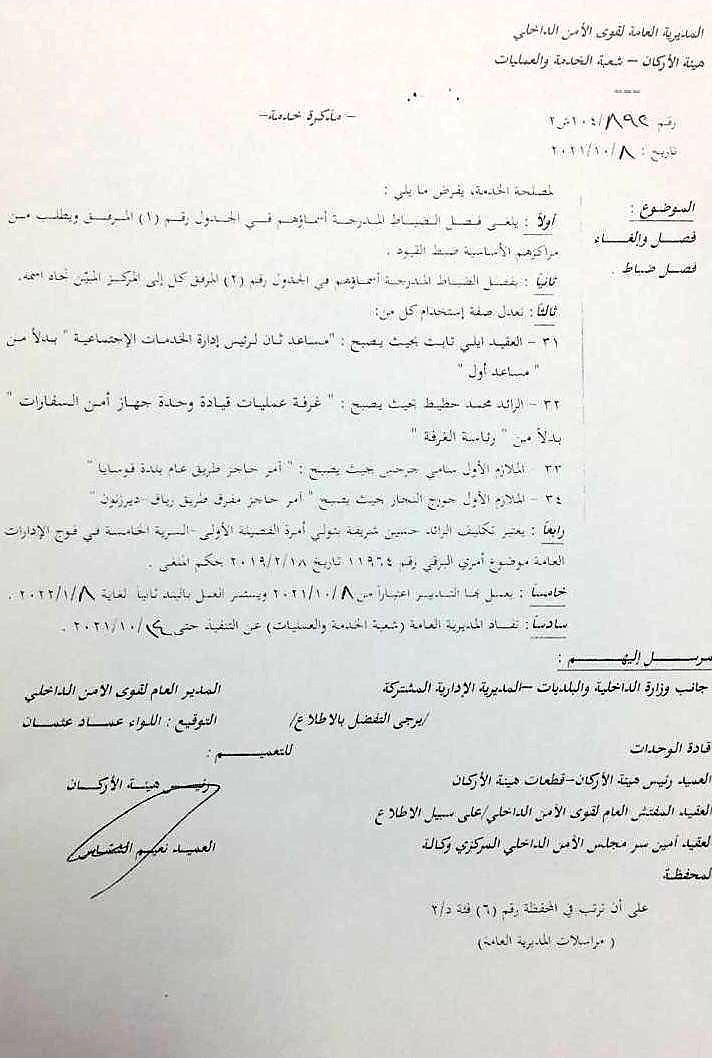 المديرية العامة لقوى الأمن الداخلي
هيئة الأركان – شعبة الخدمة والعمليات
===
رقم ٨٩٢/١٠٤ش٢
-مذكرة خدمة-
تاريخ : ٢٠٢١/١٠/٨
الموضوع :
فصل والغاء
فصل ضباط .
لمصلحة الخدمة، يفرض ما يلي :
أولاً : يلغى فصل الضباط المدرجة أسماؤهم في الجدول رقم (١) المرفق ويطلب من
مراكزهم الأساسية ضبط القيود .
ثانيا : يفصل الضباط المدرجة أسماؤهم في الجدول رقم (٢) المرفق كل إلى المركز المبيّن تجاه اسمه.
ثالثا : تعدل صفة إستخدام كل من:
٣١ – العقيد ايلي ثابت بحيث يصبح : "مساعد ثان لرئيس إدارة الخدمات الإجتماعية " بدلاً من
" مساعد أول "
٣٢ – الرائد محمد حطيط بحيث يصبح : " غرفة عمليات قيادة وحدة جهاز أمن السفارات "
بدلاً من " رئاسة الغرفة "
٣٣ – الملازم الأول سامي جرجس بحيث يصبح : " آمر حاجز طريق عام بلدة قوسايا "
٣٤ – الملازم الأول جورج النجار بحيث يصبح " آمر حاجز مفرق طريق رياق-ديرزنون "
رابعاً : يعتبر تكليف الرائد حسين شريفة بتولي أمرة الفصيلة الأولى-السرية الخامسة في فوج الإدارات
العامة موضوع أمري البرقي رقم ١١٩٦٤ تاريخ ٢٠١٩/٢/١٨ بحكم الملغى .
خامساً : يعمل بهذا التدبير اعتباراً من ٢٠٢١/١٠/٨ ويستمر العمل بالبند ثانياً لغاية ٢٠٢٢/١/٨ .
سادساً : تفاد المديرية العامة (شعبة الخدمة والعمليات) عن التنفيذ حتى ٢٠٢١/١٠/ .
مرسل إليهم :
جانب وزارة الداخلية والبلديات –المديرية الإدارية المشتركة
/يرجى التفضل بالاطلاع/
قادة الوحدات
العميد رئيس هيئة الأركان-قطعات هيئة الأركان
العقيد المفتش العام لقوى الأمن الداخلي/على سبيل الاطلاع
لعقيد أمين سر مجلس الأمن الداخلي المركزي وكالة
لمحفظة
على أن ترتب في المحفظة رقم (٦) فئة د/٢
( مراسلات المديرية العامة)
المدير العام لقوى الامن الداخلي
التوقيع : اللواء عماد عثمان
للتعميم :
رئيس هيئة الأركان
العميد نعيم الشماس